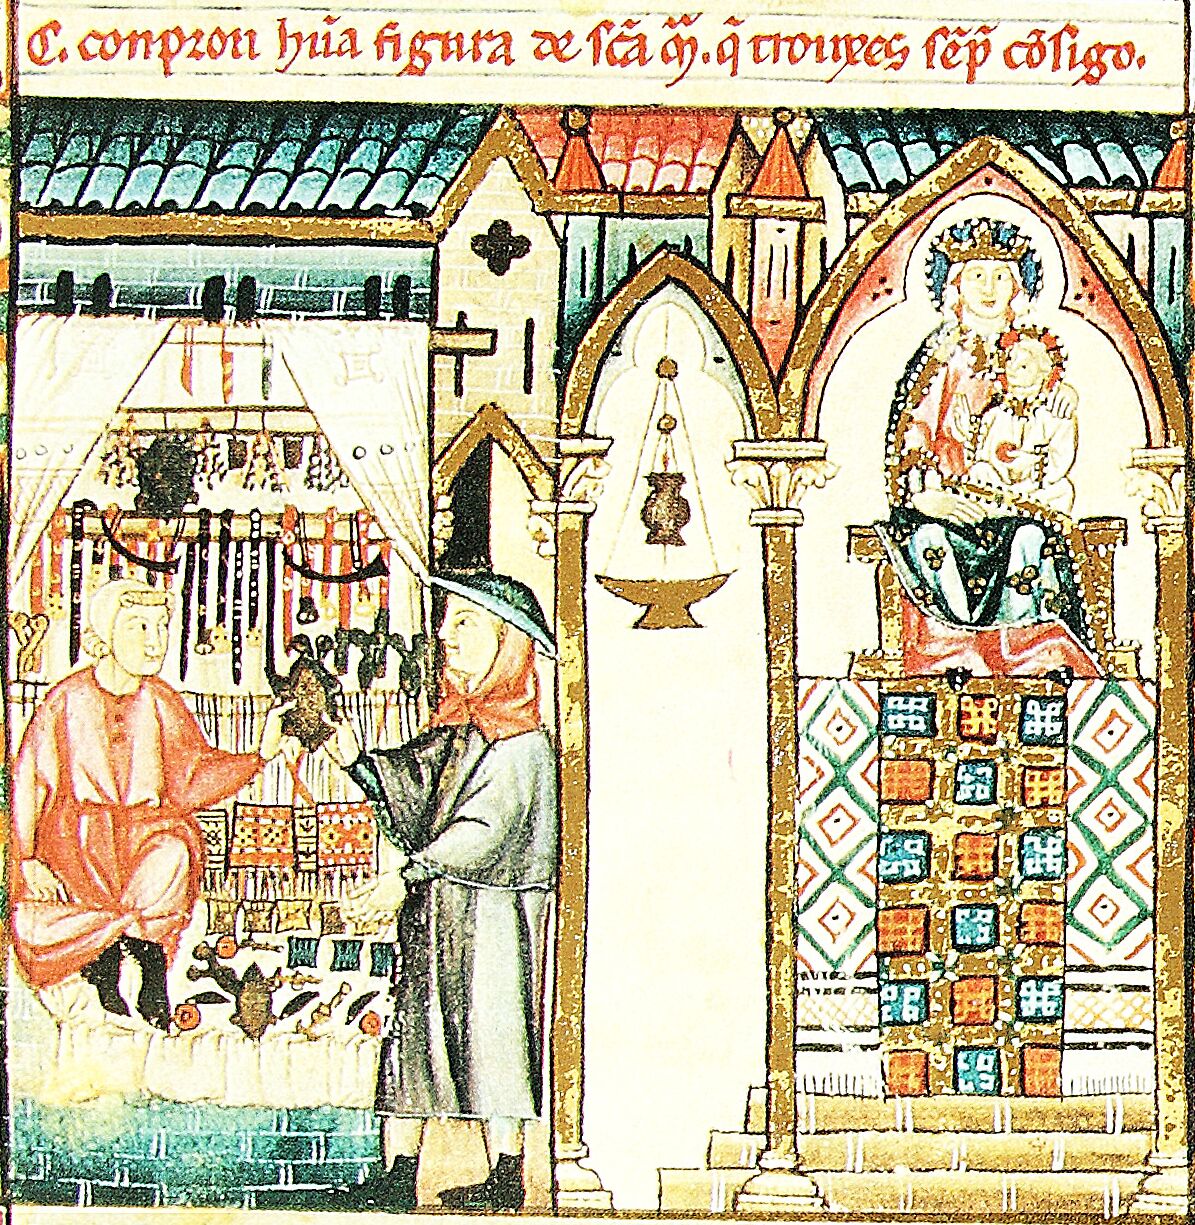 C. conprou hũa figura de sc̃a m̃. q̃ trouxes sẽp̃ cõsigo.